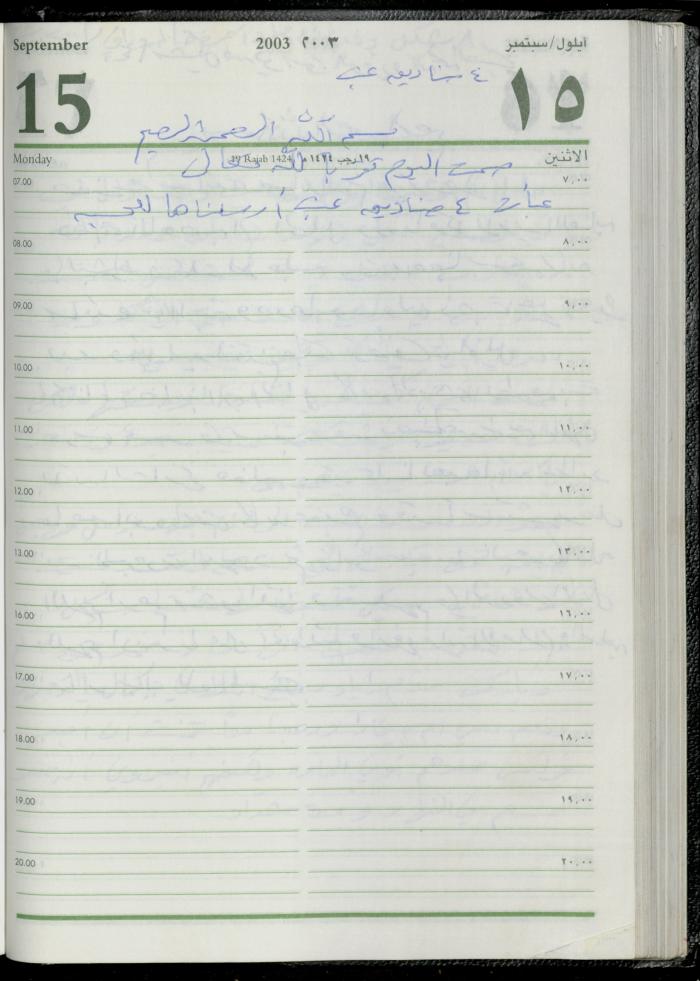 September 2003 ٢٠٠٣ أيلول/سبتمبر
15 ١٥
٤ صناديق عنب
بسم الله الرحمن الرحيم
Monday 19 Rajab 1424 ١٩ رجب ١٤٢٤ هـ الاثنين
صمت اليوم قربا لله تعالى
07.00 ٧,٠٠
٤ صناديق عنب أرسلناها
08.00 ٨,٠٠
09.00 ٩,٠٠
10.00 ١٠,٠٠
11.00 ١١,٠٠
12.00 ١٢,٠٠
13.00 ١٣,٠٠
16.00 ١٦,٠٠
17.00 ١٧,٠٠
18.00 ١٨,٠٠
19.00 ١٩,٠٠
20.00 ٢٠,٠٠